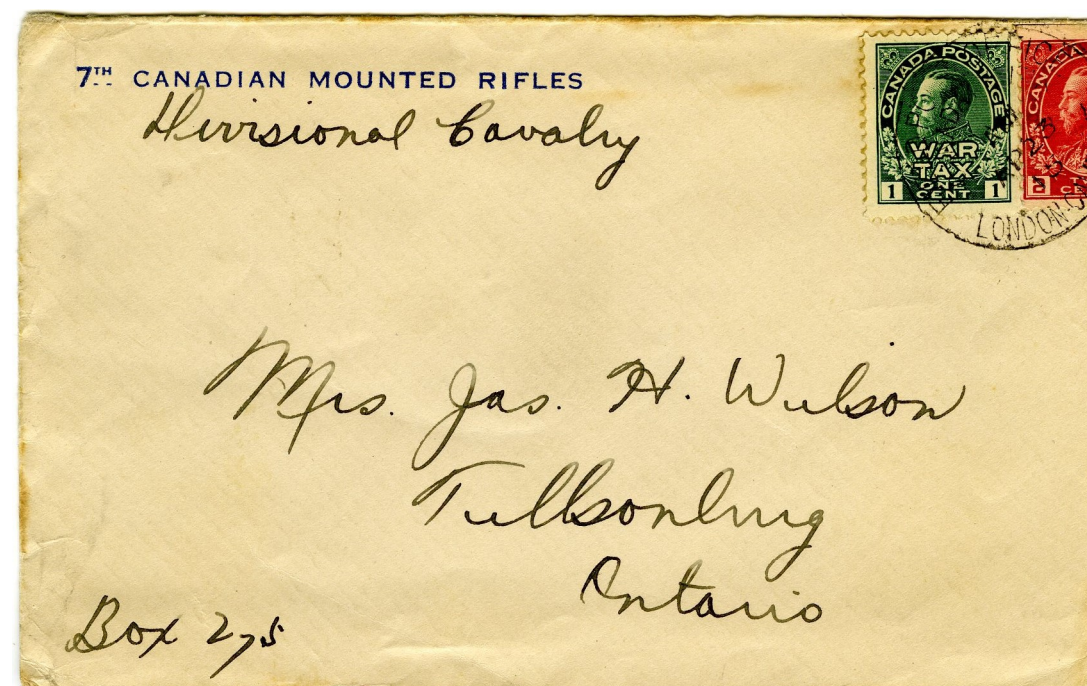 7TH CANADIAN MOUNTED RIFLES
Divisional Cavalry
CANADA POSTAGE
WAR
TAX
ONE
CENT
1 1
CANADA
LONDON
Mrs. Jas. H. Wilson
Tillsonburg
Ontario
Box 275